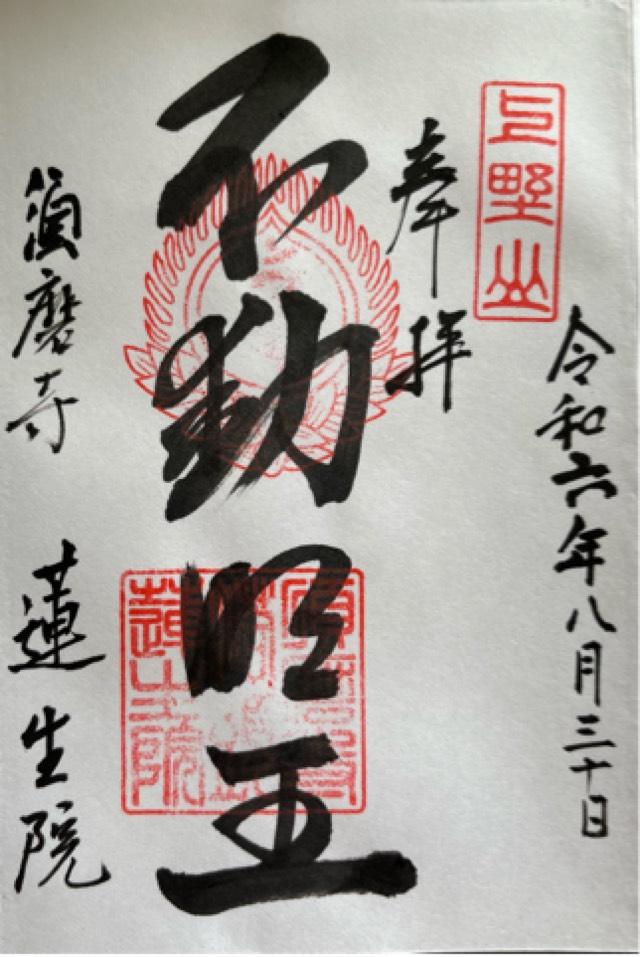 令和六年八月三十日
上野山
奉拝
不動明王
須磨寺 蓮生院